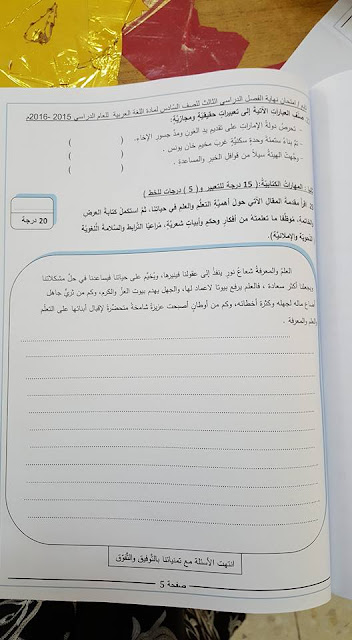 امتحان نهاية الفصل الدراسي الثالث للصف السادس لمادة اللغة العربية للعام الدراسي 2015 -2016م
صنف العبارات الآتية إلى تعبيرات حقيقية ومجازية:
- تحرص دولة الإمارات على تقديم يد العون ومدّ جسور الإخاء. ( )
- تمّ بناء ستمئة وحدةٍ سكنيّةٍ غرب مخيم خان يونس . ( )
- وجّهت الهيئة سيلًا من قوافل الخير والمساعدة . ( )
المهاراتُ الكتابيّة: ( 15 درجة للتعبير و ( 5 ) درجات للخط )
اقرأ مقدمة المقال الآتي حول أهميّة التعلّم والعلم في حياتنا، ثمّ استكمل كتابة العرض
والخاتمة، موظّفًا ما تعلمته من أفكارٍ وحكمٍ وأبياتٍ شعريّة، مُراعيًا التّرابط والسّلامة اللّغويّة
النّحويّة والإملائيّة).
20 درجة
العلمُ والمعرفة شعاعُ نورٍ ينفذُ إلى عقولنا فينيرها، ويخيّم على حياتنا فيساعدنا في حلّ مشكلاتنا
ويجعلنا أكثر سعادة ، فالعلم يرفع بيوتًا لا عماد لها، والجهل يهدم بيوت العزّ والكرم، وكم من ثريٍّ جاهل
أضاع ماله لجهله وكثرة أخطائه، وكم من أوطانٍ أصبحت عزيزة شامخة متحضّرة لإقبال أبنائها على التعلّم
والعلم والمعرفة .
انتهت الأسئلة مع تمنياتنا بالتّوفيق والتّفوّق
صفحة 5